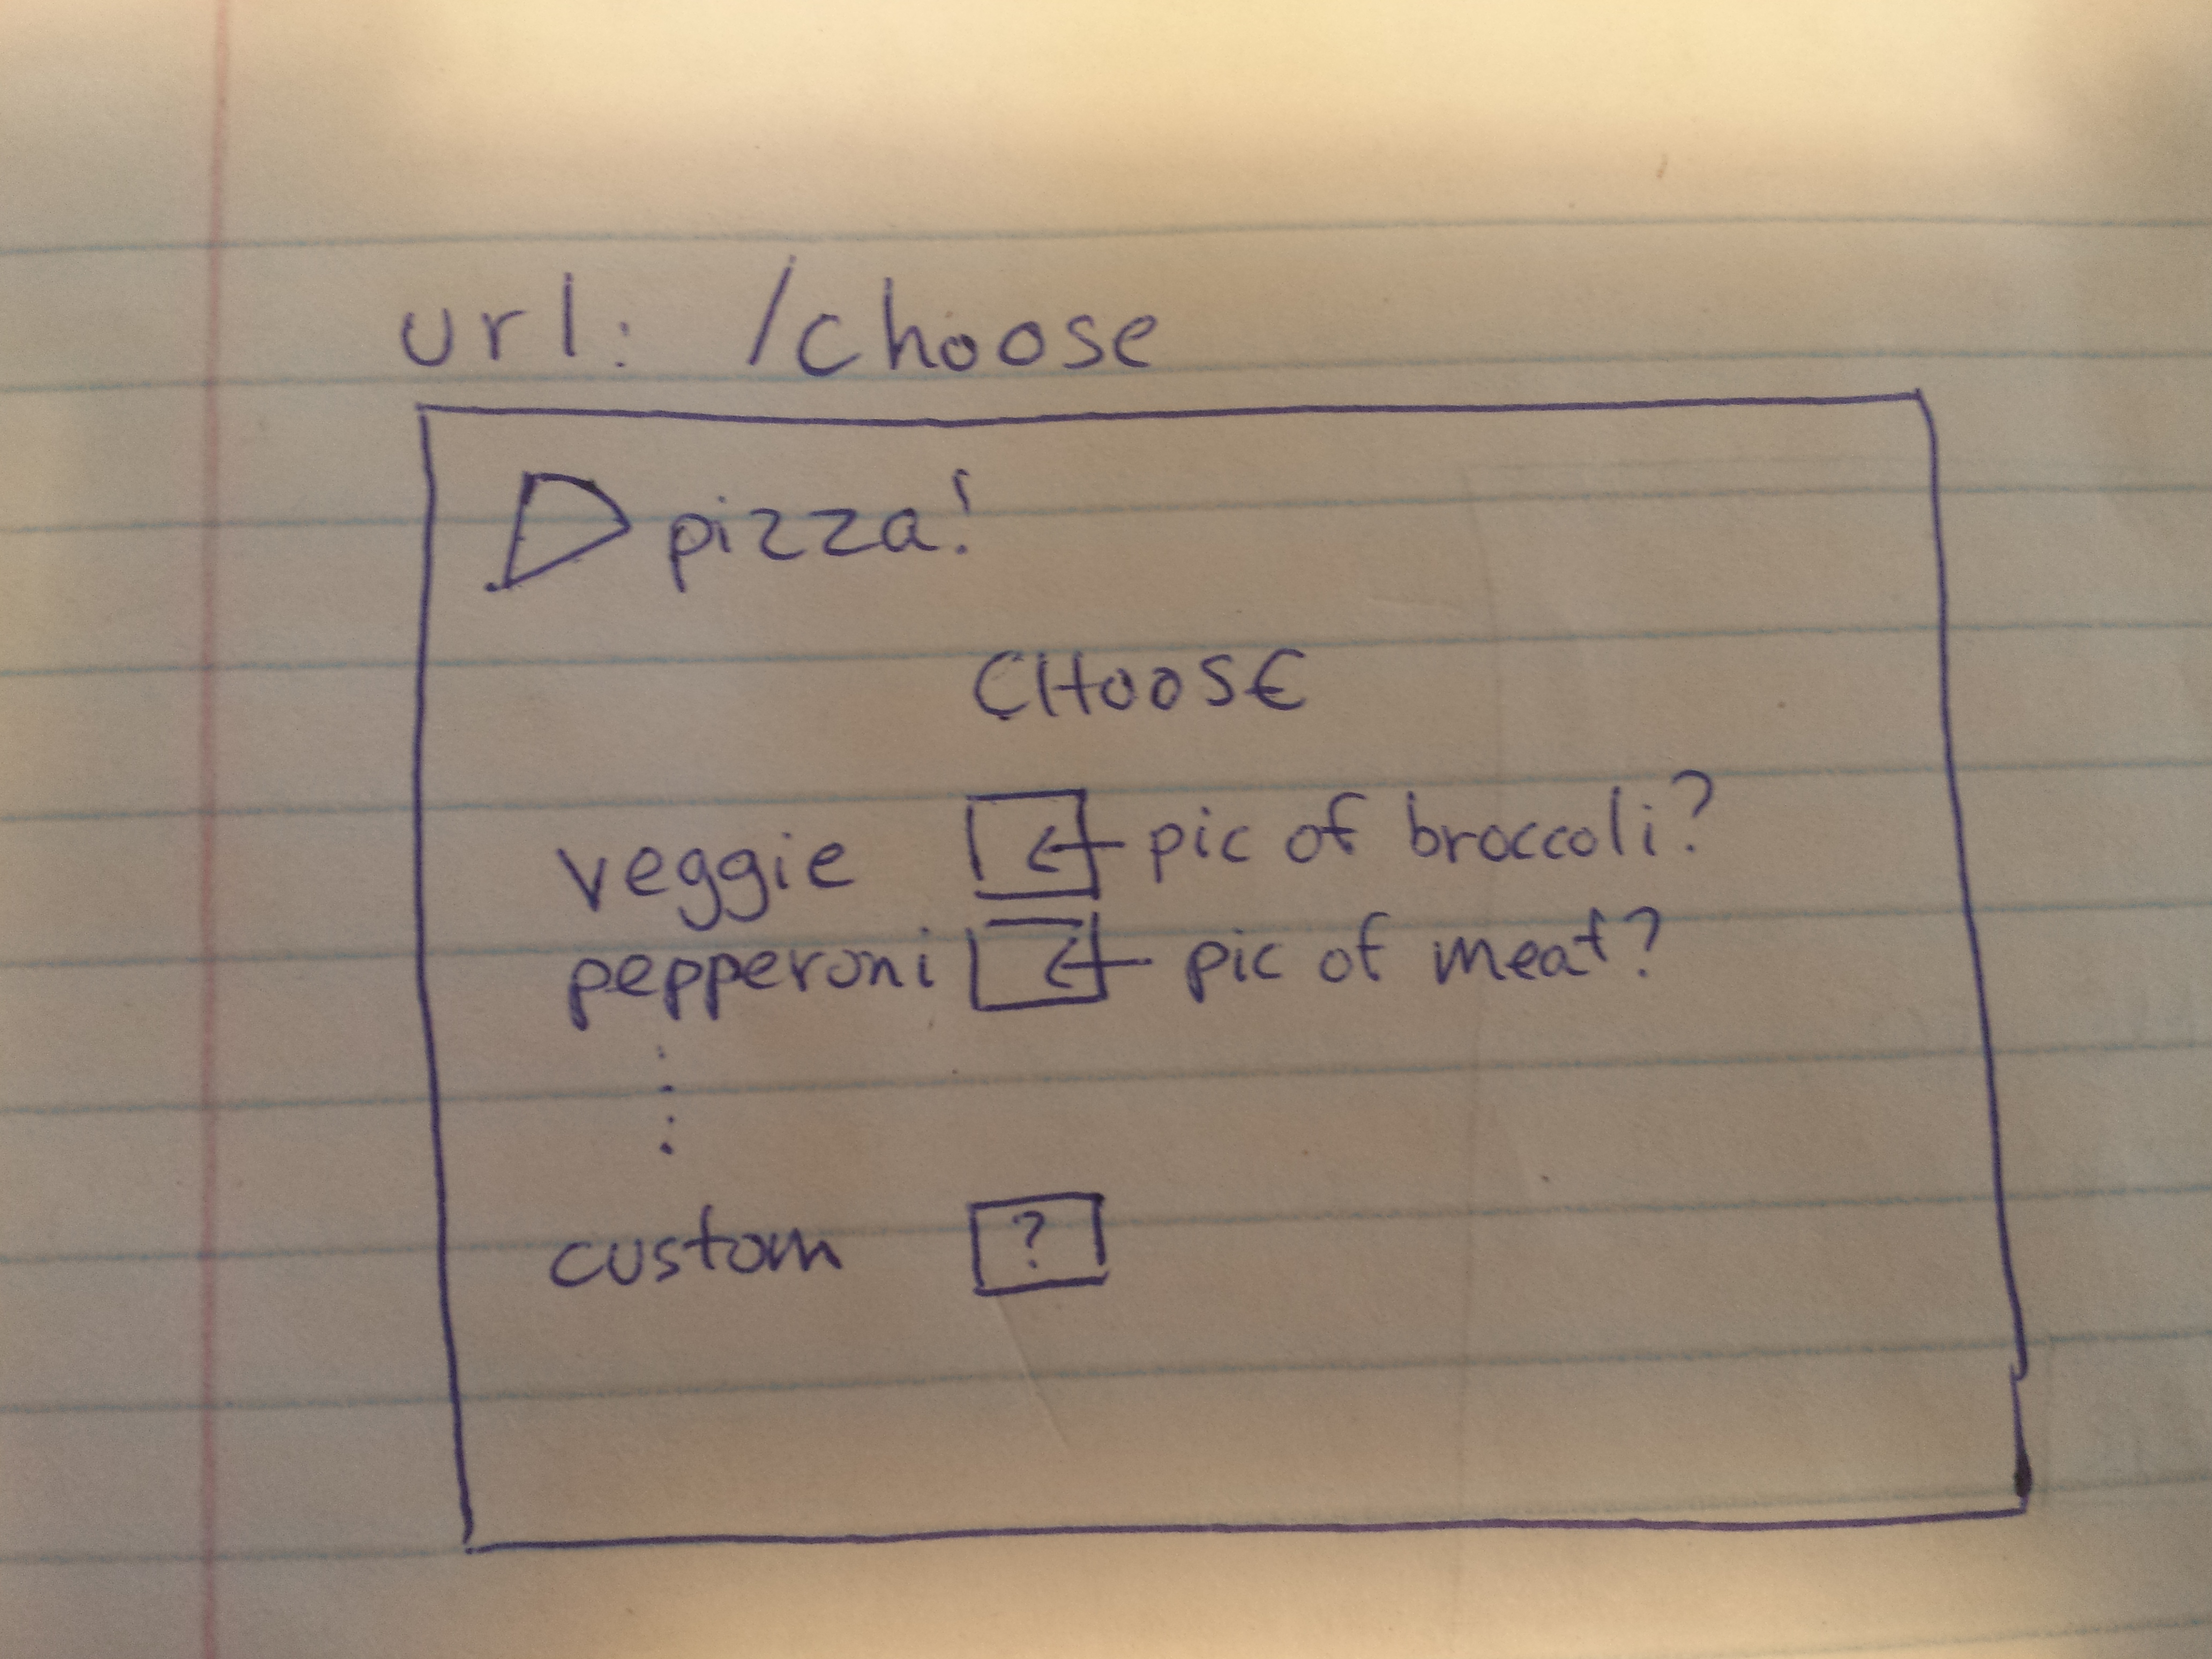 url: /choose
pizza!
CHOOSE
veggie pic of broccoli?
pepperoni pic of meat?
custom ?